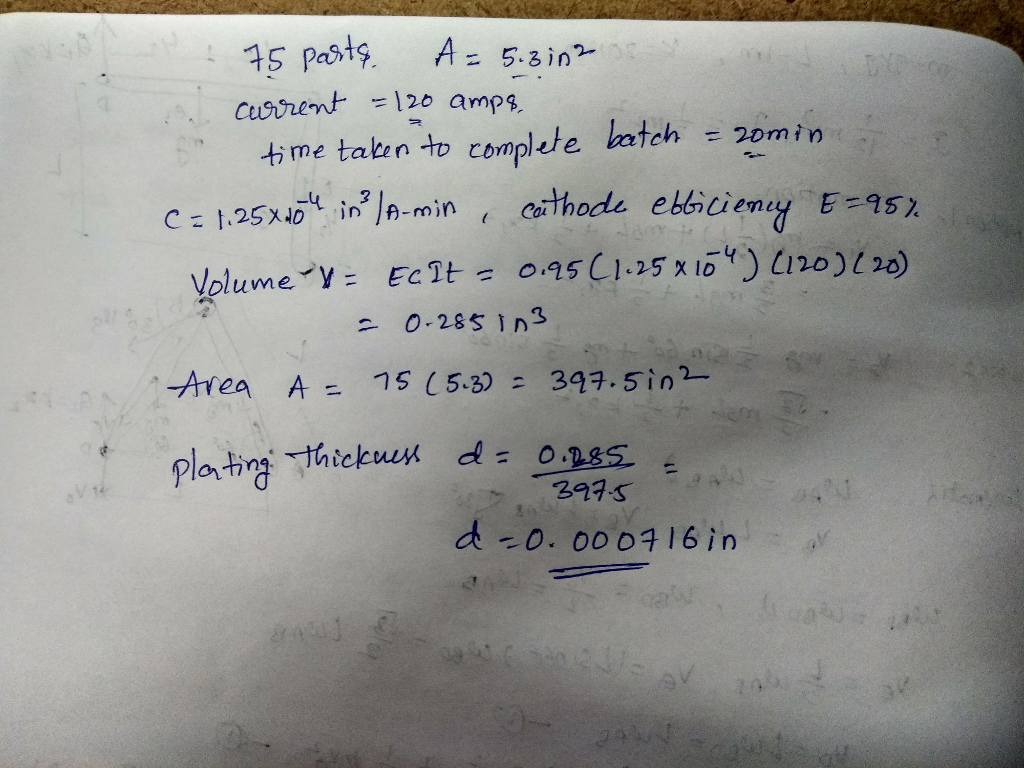 75 parts. A = 5.3 in²
current = 120 amps.
time taken to complete batch = 20min
C = 1.25x10⁻⁴ in³/A-min , cathode efficiency E = 95%
Volume V = ECIt = 0.95 (1.25 x 10⁻⁴) (120) (20)
= 0.285 in³
Area A = 75 (5.3) = 397.5in²
Plating thickness d = 0.285/397.5 =
d = 0.000716in